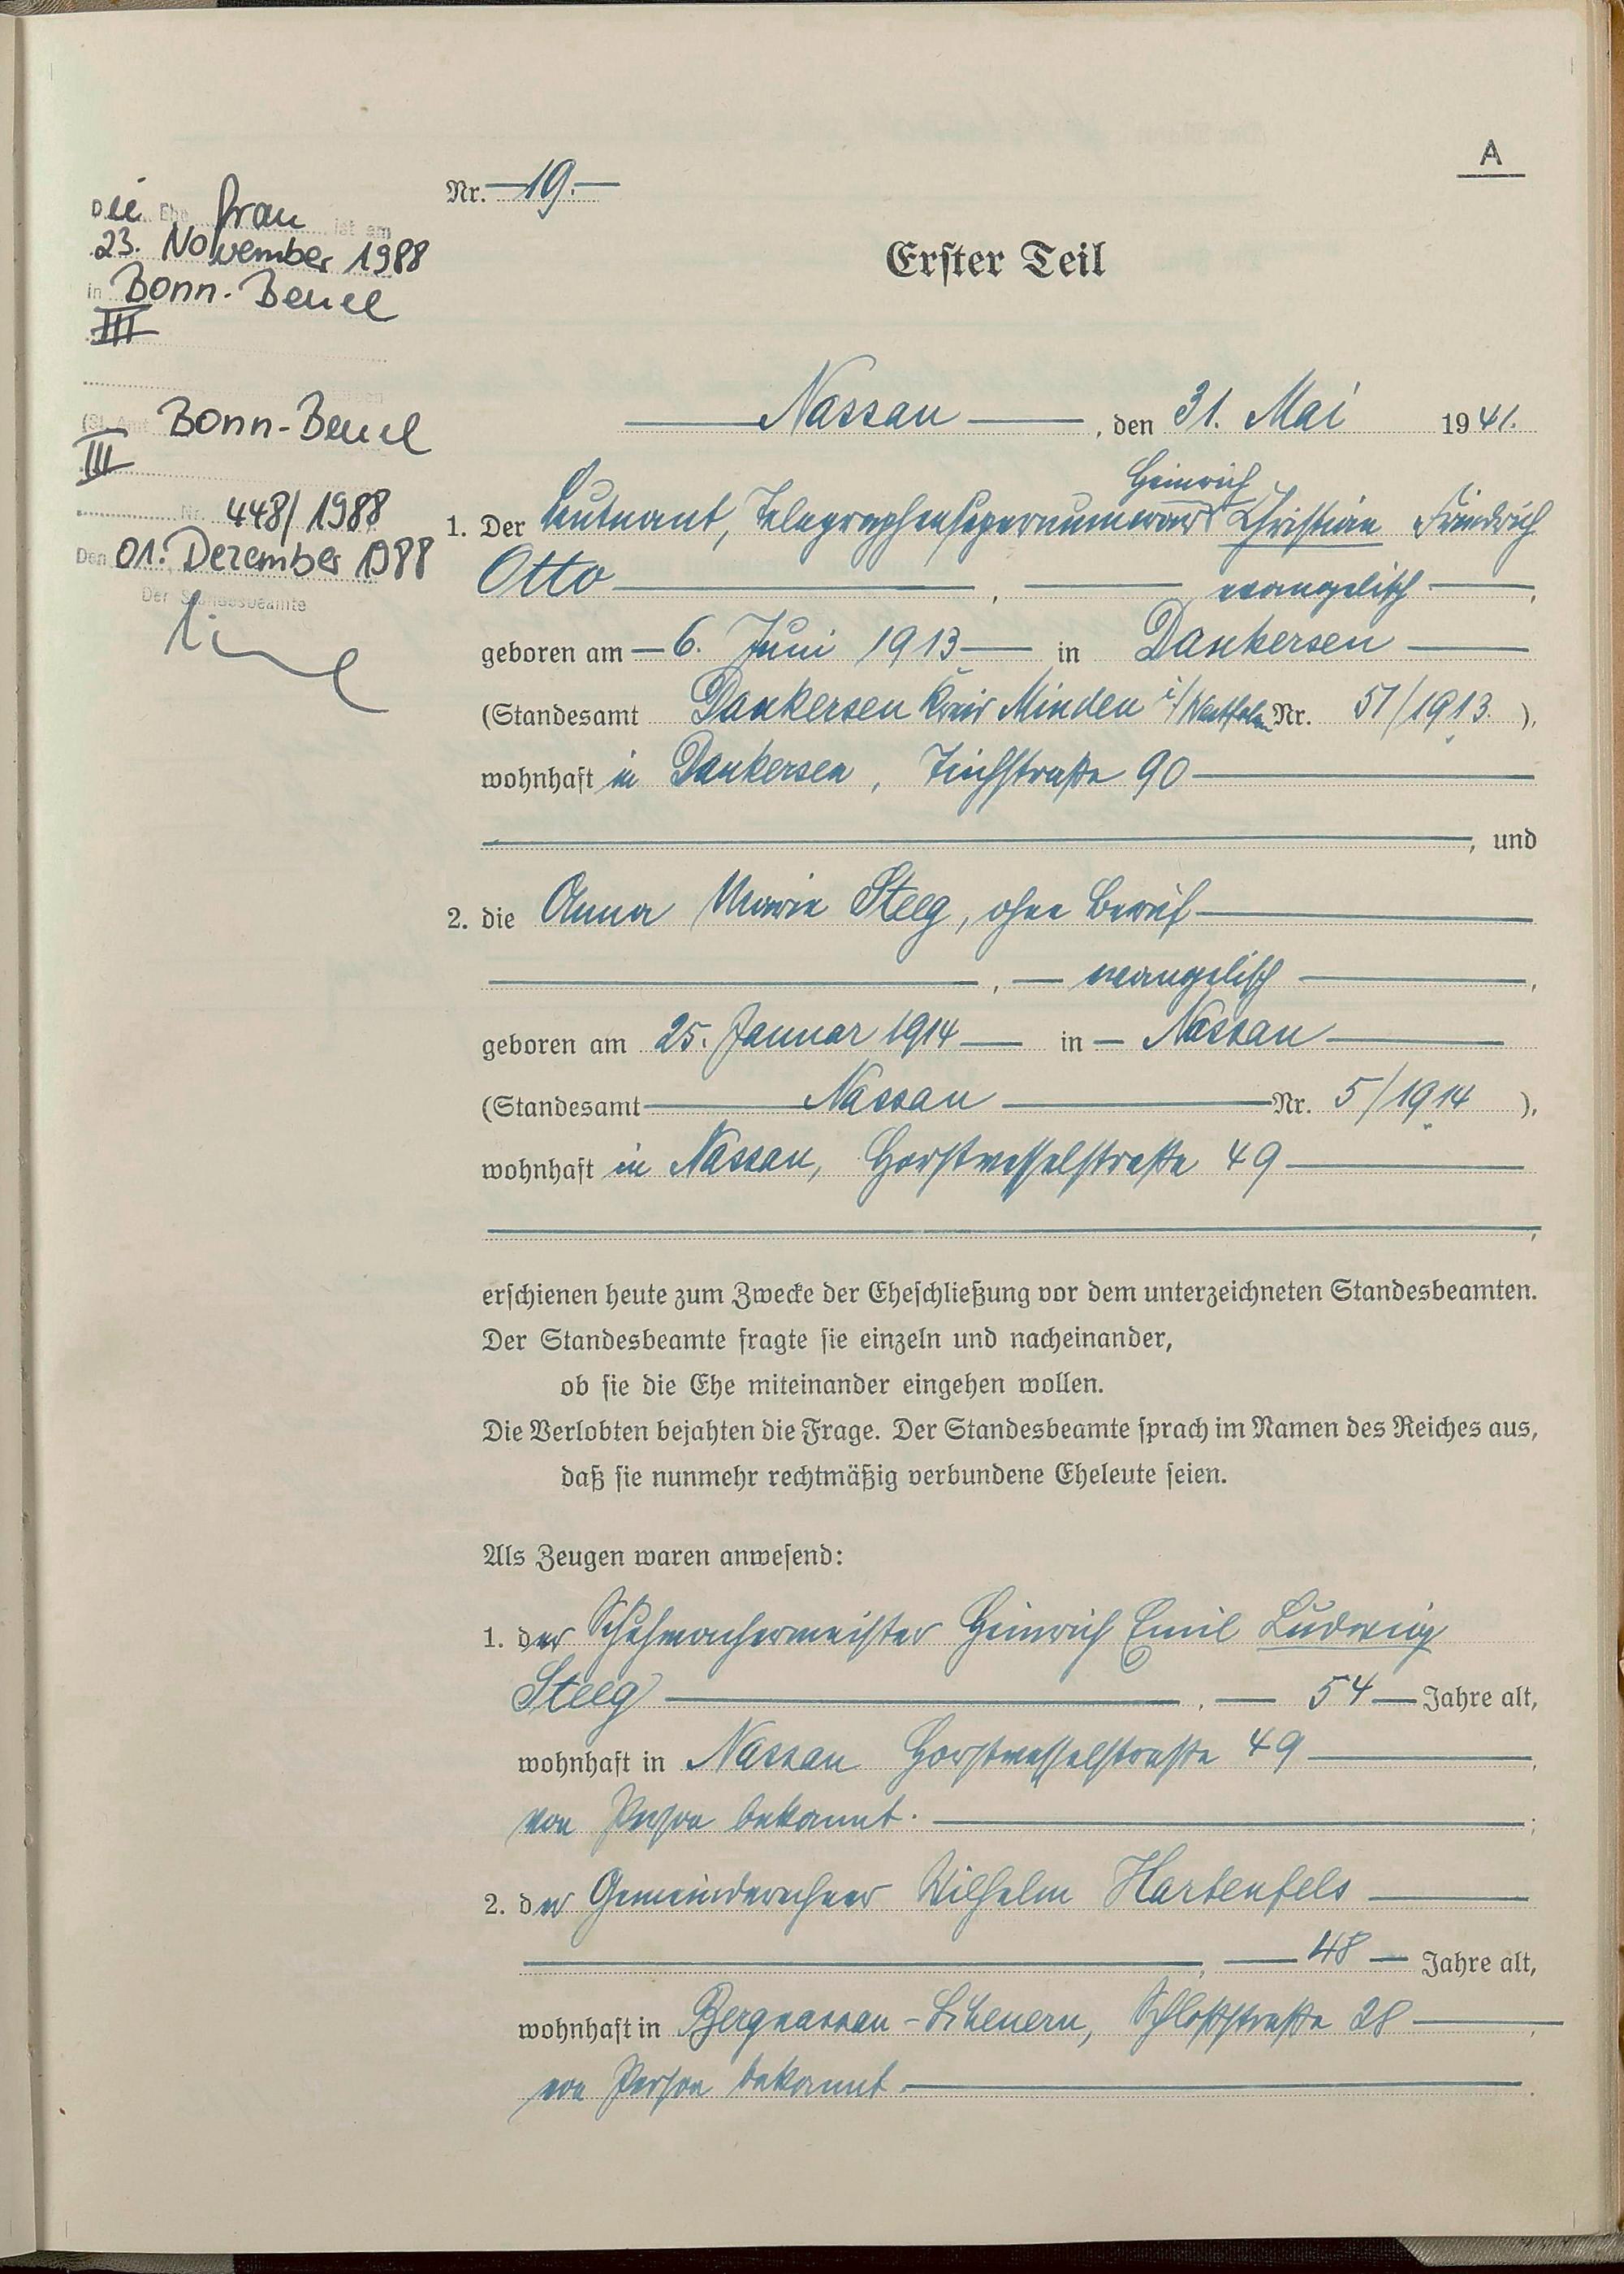 A
Nr. 19.
Erster Teil
Die Ehefrau ist am
23. November 1988
in Bonn-Beuel
III
(St. Amt Bonn-Beuel
III
Nr. 448/1988
Den 01. Dezember 1988
Der Standesbeamte
Nassau, den 31. Mai 1941.
Heinrich
1. Der Leutnant, Telegraphensupernumerar Christian Friedrich
Otto, evangelisch,
geboren am 6. Juni 1913 in Dankersen
(Standesamt Dankersen Kreis Minden i/Westfalen Nr. 51/1913.),
wohnhaft in Dankersen, 90
, und
2. die Anna Marie Steeg, ohne Beruf
, evangelisch,
geboren am 25. Januar 1914 in Nassau
(Standesamt Nassau Nr. 5/1914),
wohnhaft in Nassau, Horstwesselstraße 49
,
erschienen heute zum Zwecke der Eheschließung vor dem unterzeichneten Standesbeamten.
Der Standesbeamte fragte sie einzeln und nacheinander,
ob sie die Ehe miteinander eingehen wollen.
Die Verlobten bejahten die Frage. Der Standesbeamte sprach im Namen des Reiches aus,
daß sie nunmehr rechtmäßig verbundene Eheleute seien.
Als Zeugen waren anwesend:
1. der Schuhmachermeister Heinrich Emil Ludwig
Steeg, 54 Jahre alt,
wohnhaft in Nassau Horstwesselstraße 49,
von Person bekannt.;
2. der Gemeinderechner Wilhelm Hartenfels
, 48 Jahre alt,
wohnhaft in Bergnassau-Scheuern, Schloßstraße 28,
von Person bekannt.